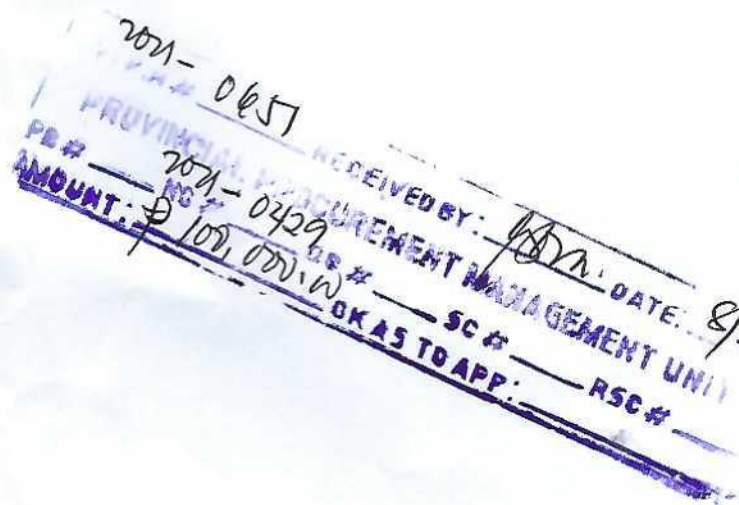 2021-0651
RECEIVED BY: DATE: 8/
PROVINCIAL PROCUREMENT MANAGEMENT UNIT
2021-0429
PR # NC # OB # SC # RSC #
AMOUNT: ₱ 100,000.00 OK AS TO APP: